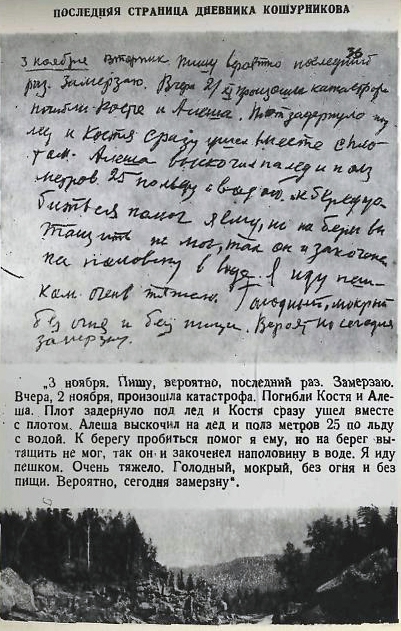 ПОСЛЕДНЯЯ СТРАНИЦА ДНЕВНИКА КОШУРНИКОВА
36
3 ноября вторник Пишу вероятно последний
раз. Замерзаю. Вчера 2/XI произошла катастрофа
погибли Костя и Алеша. Плот задернуло под
лед и Костя сразу ушел вместе с пло-
том. Алеша выскочил на лед и полз
метров 25 по льду с водой. К берегу про
биться помог я ему, но на берег вы
тащить не мог, так он и закоченел
на половину в воде. Я иду пеш-
ком. Очень тяжело. Голодный, мокрый
без огня и без пищи. Вероятно сегодня
замерзну.
„3 ноября. Пишу, вероятно, последний раз. Замерзаю.
Вчера, 2 ноября, произошла катастрофа. Погибли Костя и Але-
ша. Плот задернуло под лед и Костя сразу ушел вместе
с плотом. Алеша выскочил на лед и полз метров 25 по льду
с водой. К берегу пробиться помог я ему, но на берег вы-
тащить не мог, так он и закоченел наполовину в воде. Я иду
пешком. Очень тяжело. Голодный, мокрый, без огня и без
пищи. Вероятно, сегодня замерзну".